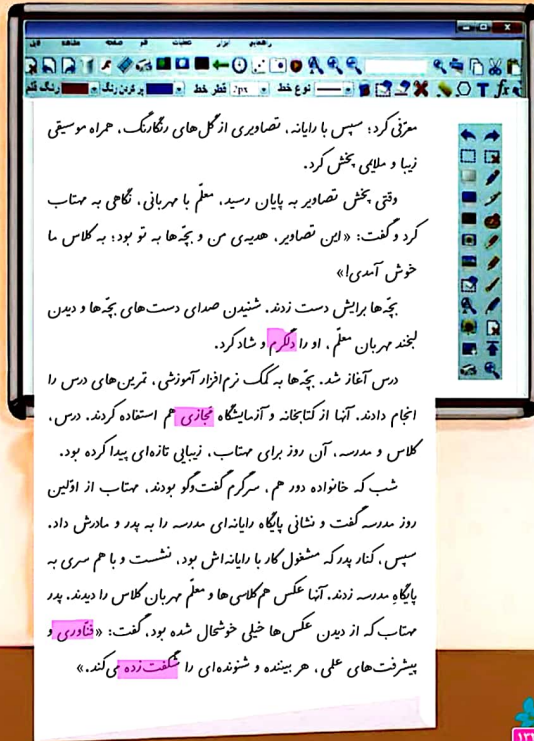 راهنمای ابزار عملیات قلم صفحه مشاهده فایل
رنگ قلم پر کردن رنگ قطر خط 2px نوع خط T fx
معرّفی کرد؛ سپس با رایانه، تصاویری از گل‌های رنگارنگ، همراه موسیقی
زیبا و ملایم پخش کرد.
وقتی پخش تصاویر به پایان رسید، معلّم با مهربانی، نگاهی به مهتاب
کرد و گفت: «این تصاویر، هدیه‌ی من و بچّه‌ها به تو بود؛ به کلاس ما
خوش آمدی!»
بچّه‌ها برایش دست زدند. شنیدن صدای دست‌های بچّه‌ها و دیدن
لبخند مهربان معلّم، او را دلگرم و شاد کرد.
درس آغاز شد. بچّه‌ها به کمک نرم‌افزار آموزشی، تمرین‌های درس را
انجام دادند. آنها از کتابخانه و آزمایشگاه مجازی هم استفاده کردند. درس،
کلاس و مدرسه، آن روز برای مهتاب، زیبایی تازه‌ای پیدا کرده بود.
شب که خانواده دور هم، سرگرم گفت‌وگو بودند، مهتاب از اوّلین
روز مدرسه گفت و نشانی پایگاه رایانه‌ای مدرسه را به پدر و مادرش داد.
سپس، کنار پدر که مشغول کار با رایانه‌اش بود، نشست و با هم سری به
پایگاه مدرسه زدند. آنها عکس هم‌کلاسی‌ها و معلّم مهربان کلاس را دیدند. پدر
مهتاب که از دیدن عکس‌ها خیلی خوشحال شده بود، گفت: «فنّاوری و
پیشرفت‌های علمی، هر بیننده و شنونده‌ای را شگفت‌زده می‌کند.»